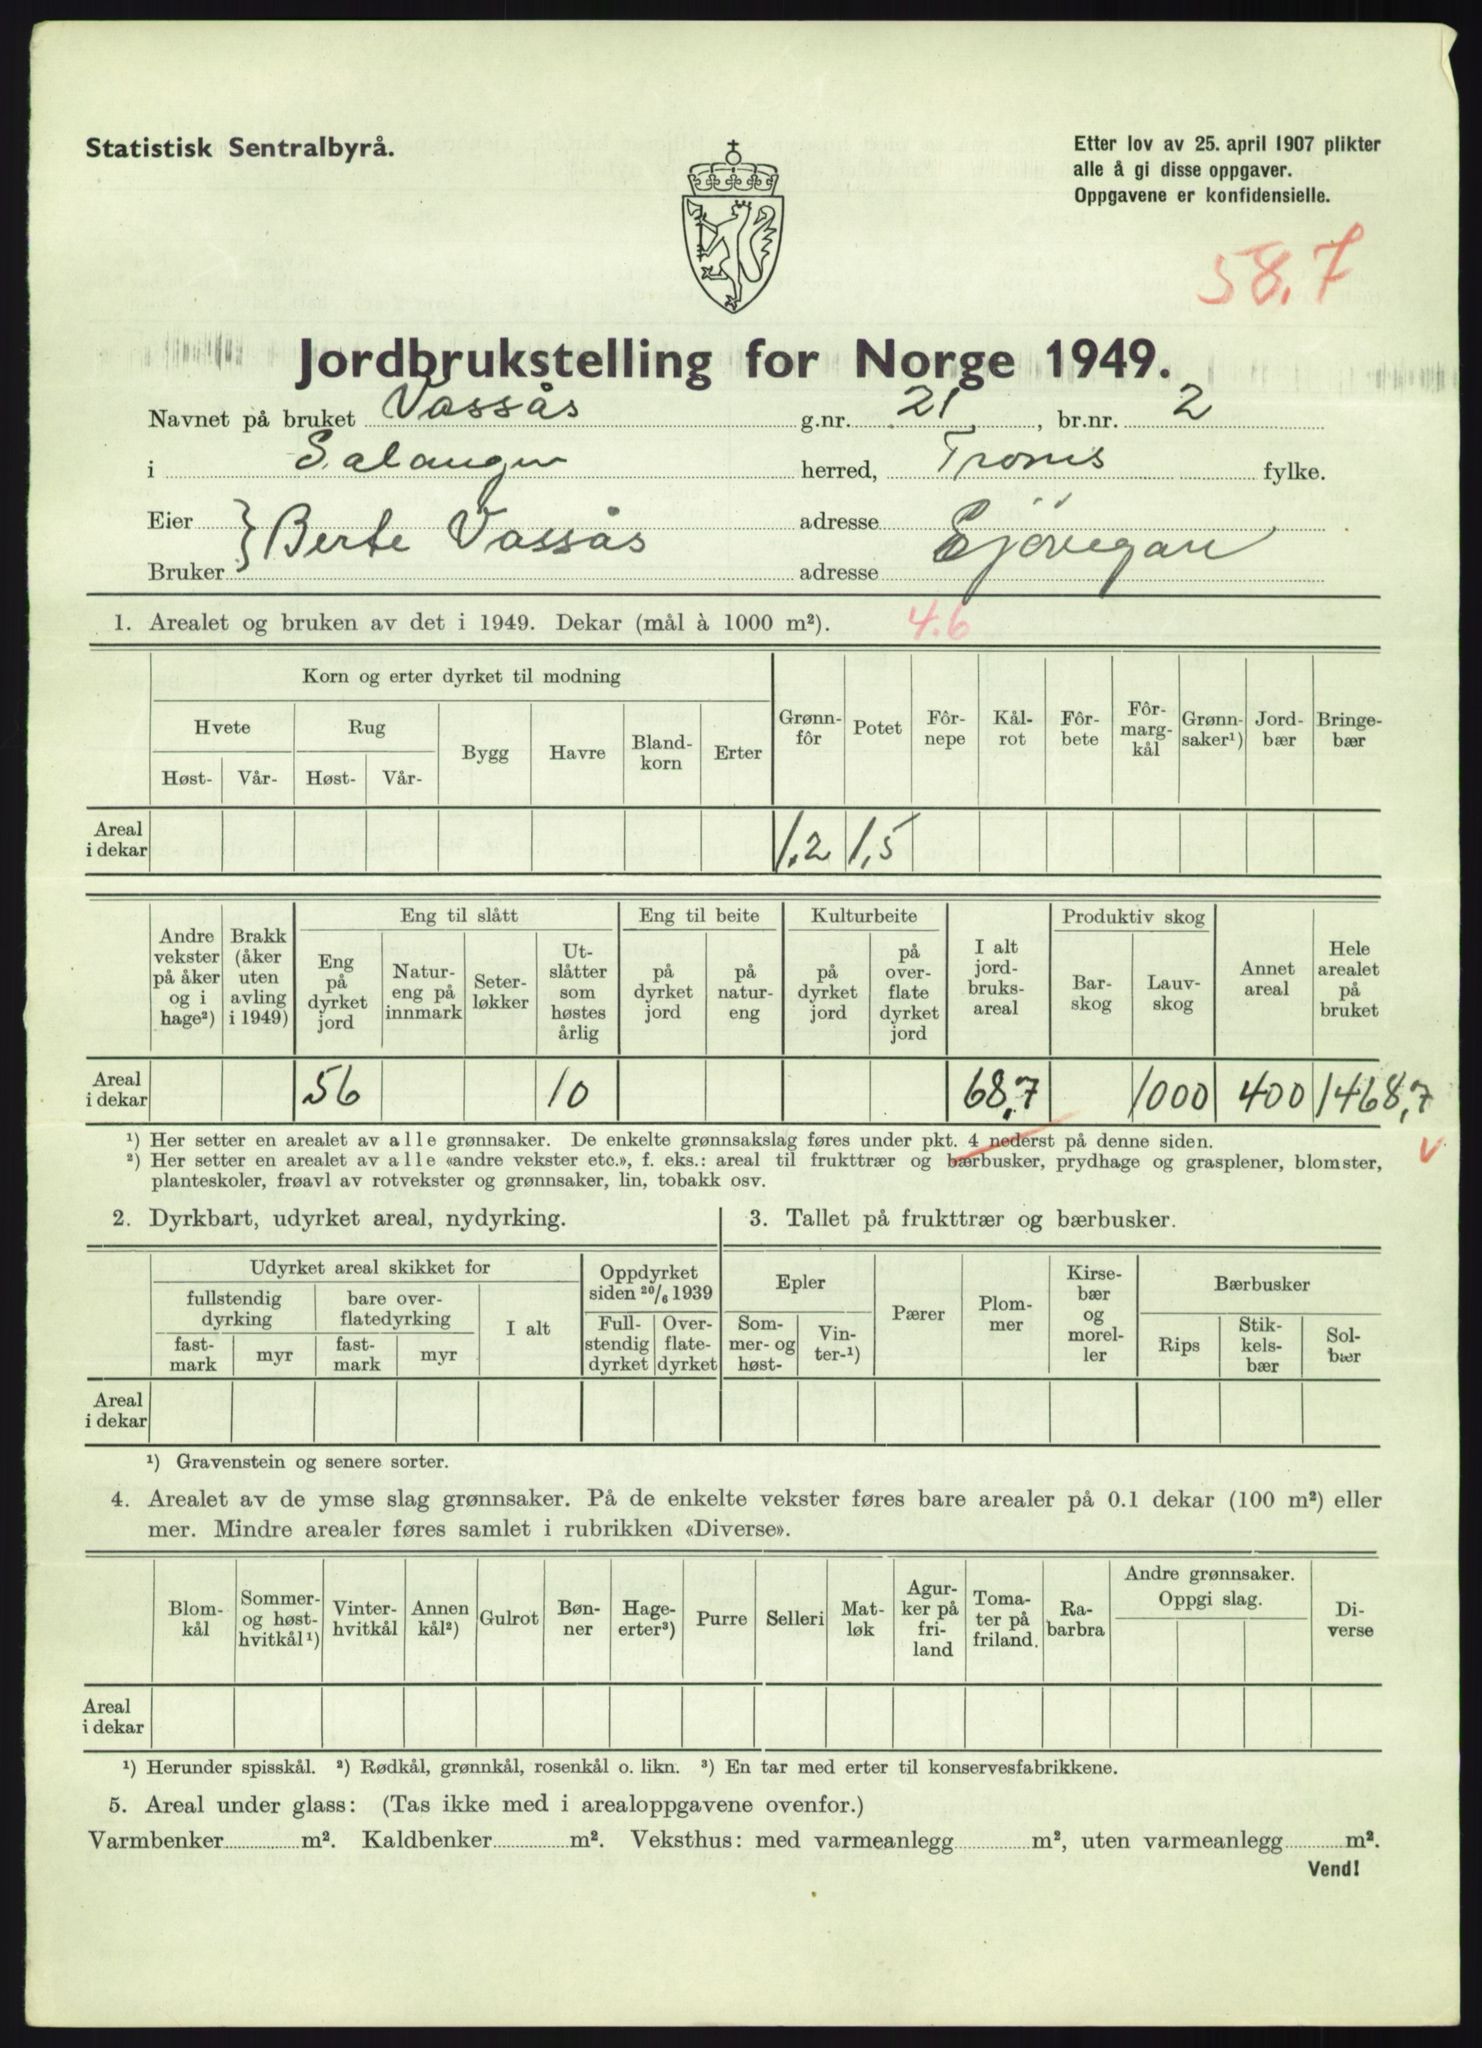 Statistisk Sentralbyrå.
Etter lov av 25. april 1907 plikter
alle å gi disse oppgaver.
Oppgavene er konfidensielle.
58,7
Jordbrukstelling for Norge 1949.
Navnet på bruket Vassås g.nr. 21, br.nr. 2
i Salangen herred, Troms fylke.
Eier } Berte Vassås adresse Sjövegan
Bruker adresse
1. Arealet og bruken av det i 1949. Dekar (mål à 1000 m²). 4.6
Korn og erter dyrket til modning
Hvete Rug Bygg Havre Bland-korn Erter Grønn-fôr Potet Fôr-nepe Kål-rot Fôr-bete Fôr-marg-kål Grønn-saker¹) Jord-bær Bringe-bær
Høst- Vår- Høst- Vår-
Areal i dekar 1,2 1,5
Andre vekster på åker og i hage²) Brakk (åker uten avling i 1949) Eng til slått Eng til beite Kulturbeite I alt jord-bruks-areal Produktiv skog Annet areal Hele arealet på bruket
Eng på dyrket jord Natur-eng på innmark Seter-løkker Ut-slåtter som høstes årlig på dyrket jord på natur-eng på dyrket jord på over-flate dyrket jord Bar-skog Lauv-skog
Areal i dekar 56 10 68,7 1000 400 1468,7
¹) Her setter en arealet av alle grønnsaker. De enkelte grønnsakslag føres under pkt. 4 nederst på denne siden.
²) Her setter en arealet av alle «andre vekster etc.», f. eks.: areal til frukttrær og bærbusker, prydhage og grasplener, blomster,
planteskoler, frøavl av rotvekster og grønnsaker, lin, tobakk osv.
2. Dyrkbart, udyrket areal, nydyrking.
Udyrket areal skikket for Oppdyrket siden 20/6 1939
fullstendig dyrking bare over-flatedyrking I alt Full-stendig dyrket Over-flate-dyrket
fast-mark myr fast-mark myr
Areal i dekar
3. Tallet på frukttrær og bærbusker.
Epler Pærer Plom-mer Kirse-bær og morel-ler Bærbusker
Som-mer- og høst- Vin-ter-¹) Rips Stik-kels-bær Sol-bær
¹) Gravenstein og senere sorter.
4. Arealet av de ymse slag grønnsaker. På de enkelte vekster føres bare arealer på 0.1 dekar (100 m²) eller
mer. Mindre arealer føres samlet i rubrikken «Diverse».
Blom-kål Sommer- og høst-hvitkål¹) Vinter-hvitkål Annen kål²) Gulrot Bøn-ner Hage-erter³) Purre Selleri Mat-løk Agur-ker på fri-land Toma-ter på friland. Ra-barbra Andre grønnsaker. Oppgi slag. Di-verse
Areal i dekar
¹) Herunder spisskål. ²) Rødkål, grønnkål, rosenkål o. likn. ³) En tar med erter til konservesfabrikkene.
5. Areal under glass: (Tas ikke med i arealoppgavene ovenfor.)
Varmbenker m². Kaldbenker m². Veksthus: med varmeanlegg m², uten varmeanlegg m².
Vend!